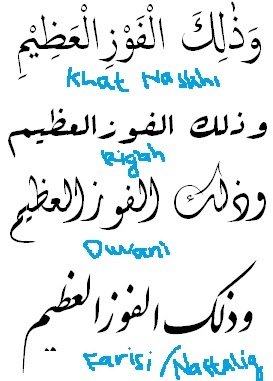 وَذَٰلِكَ الْفَوْزِ الْعَظِيْمِ
Khat Naskhi
وذلك الفوز العظيم
Riqah
وذلك الفوز العظيم
Diwani
وذلك الفوز العظيم
Farisi/Nastaliq